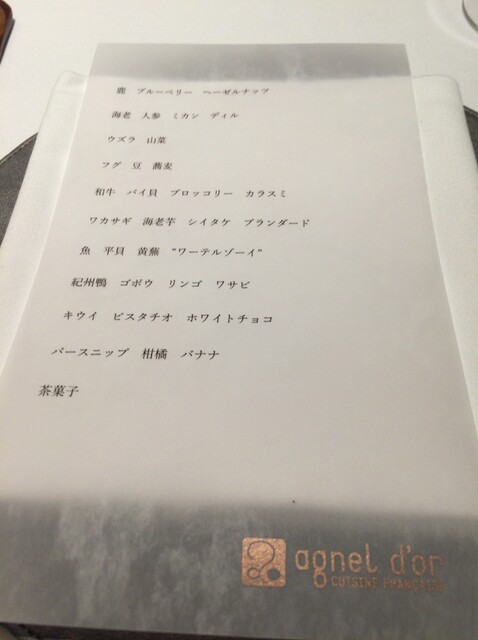 鹿　ブルーベリー　ヘーゼルナッツ
海老　人参　ミカン　ディル
ウズラ　山菜
フグ　豆　蕎麦
和牛　バイ貝　ブロッコリー　カラスミ
ワカサギ　海老芋　シイタケ　ブランダード
魚　平貝　黄蕪　“ワーテルゾーイ”
紀州鴨　ゴボウ　リンゴ　ワサビ
キウイ　ピスタチオ　ホワイトチョコ
パースニップ　柑橘　バナナ
茶菓子
agnel d'or
CUISINE FRANÇAISE